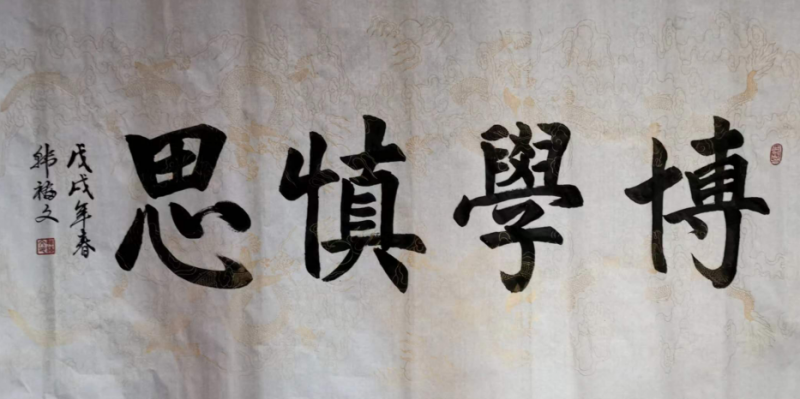 博學慎思
戊戌年春
韩福文